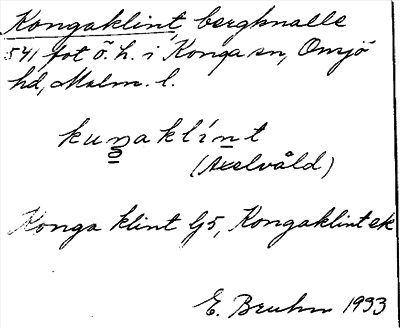 Kongaklint, bergknalle
541 fot ö. h. i Konga sn, Onsjö
hd, Malm. l.
kuŋaklínt
(Axelvåld)
Konga klint Gj5, Kongaklint ek
E. Bruhn 1933